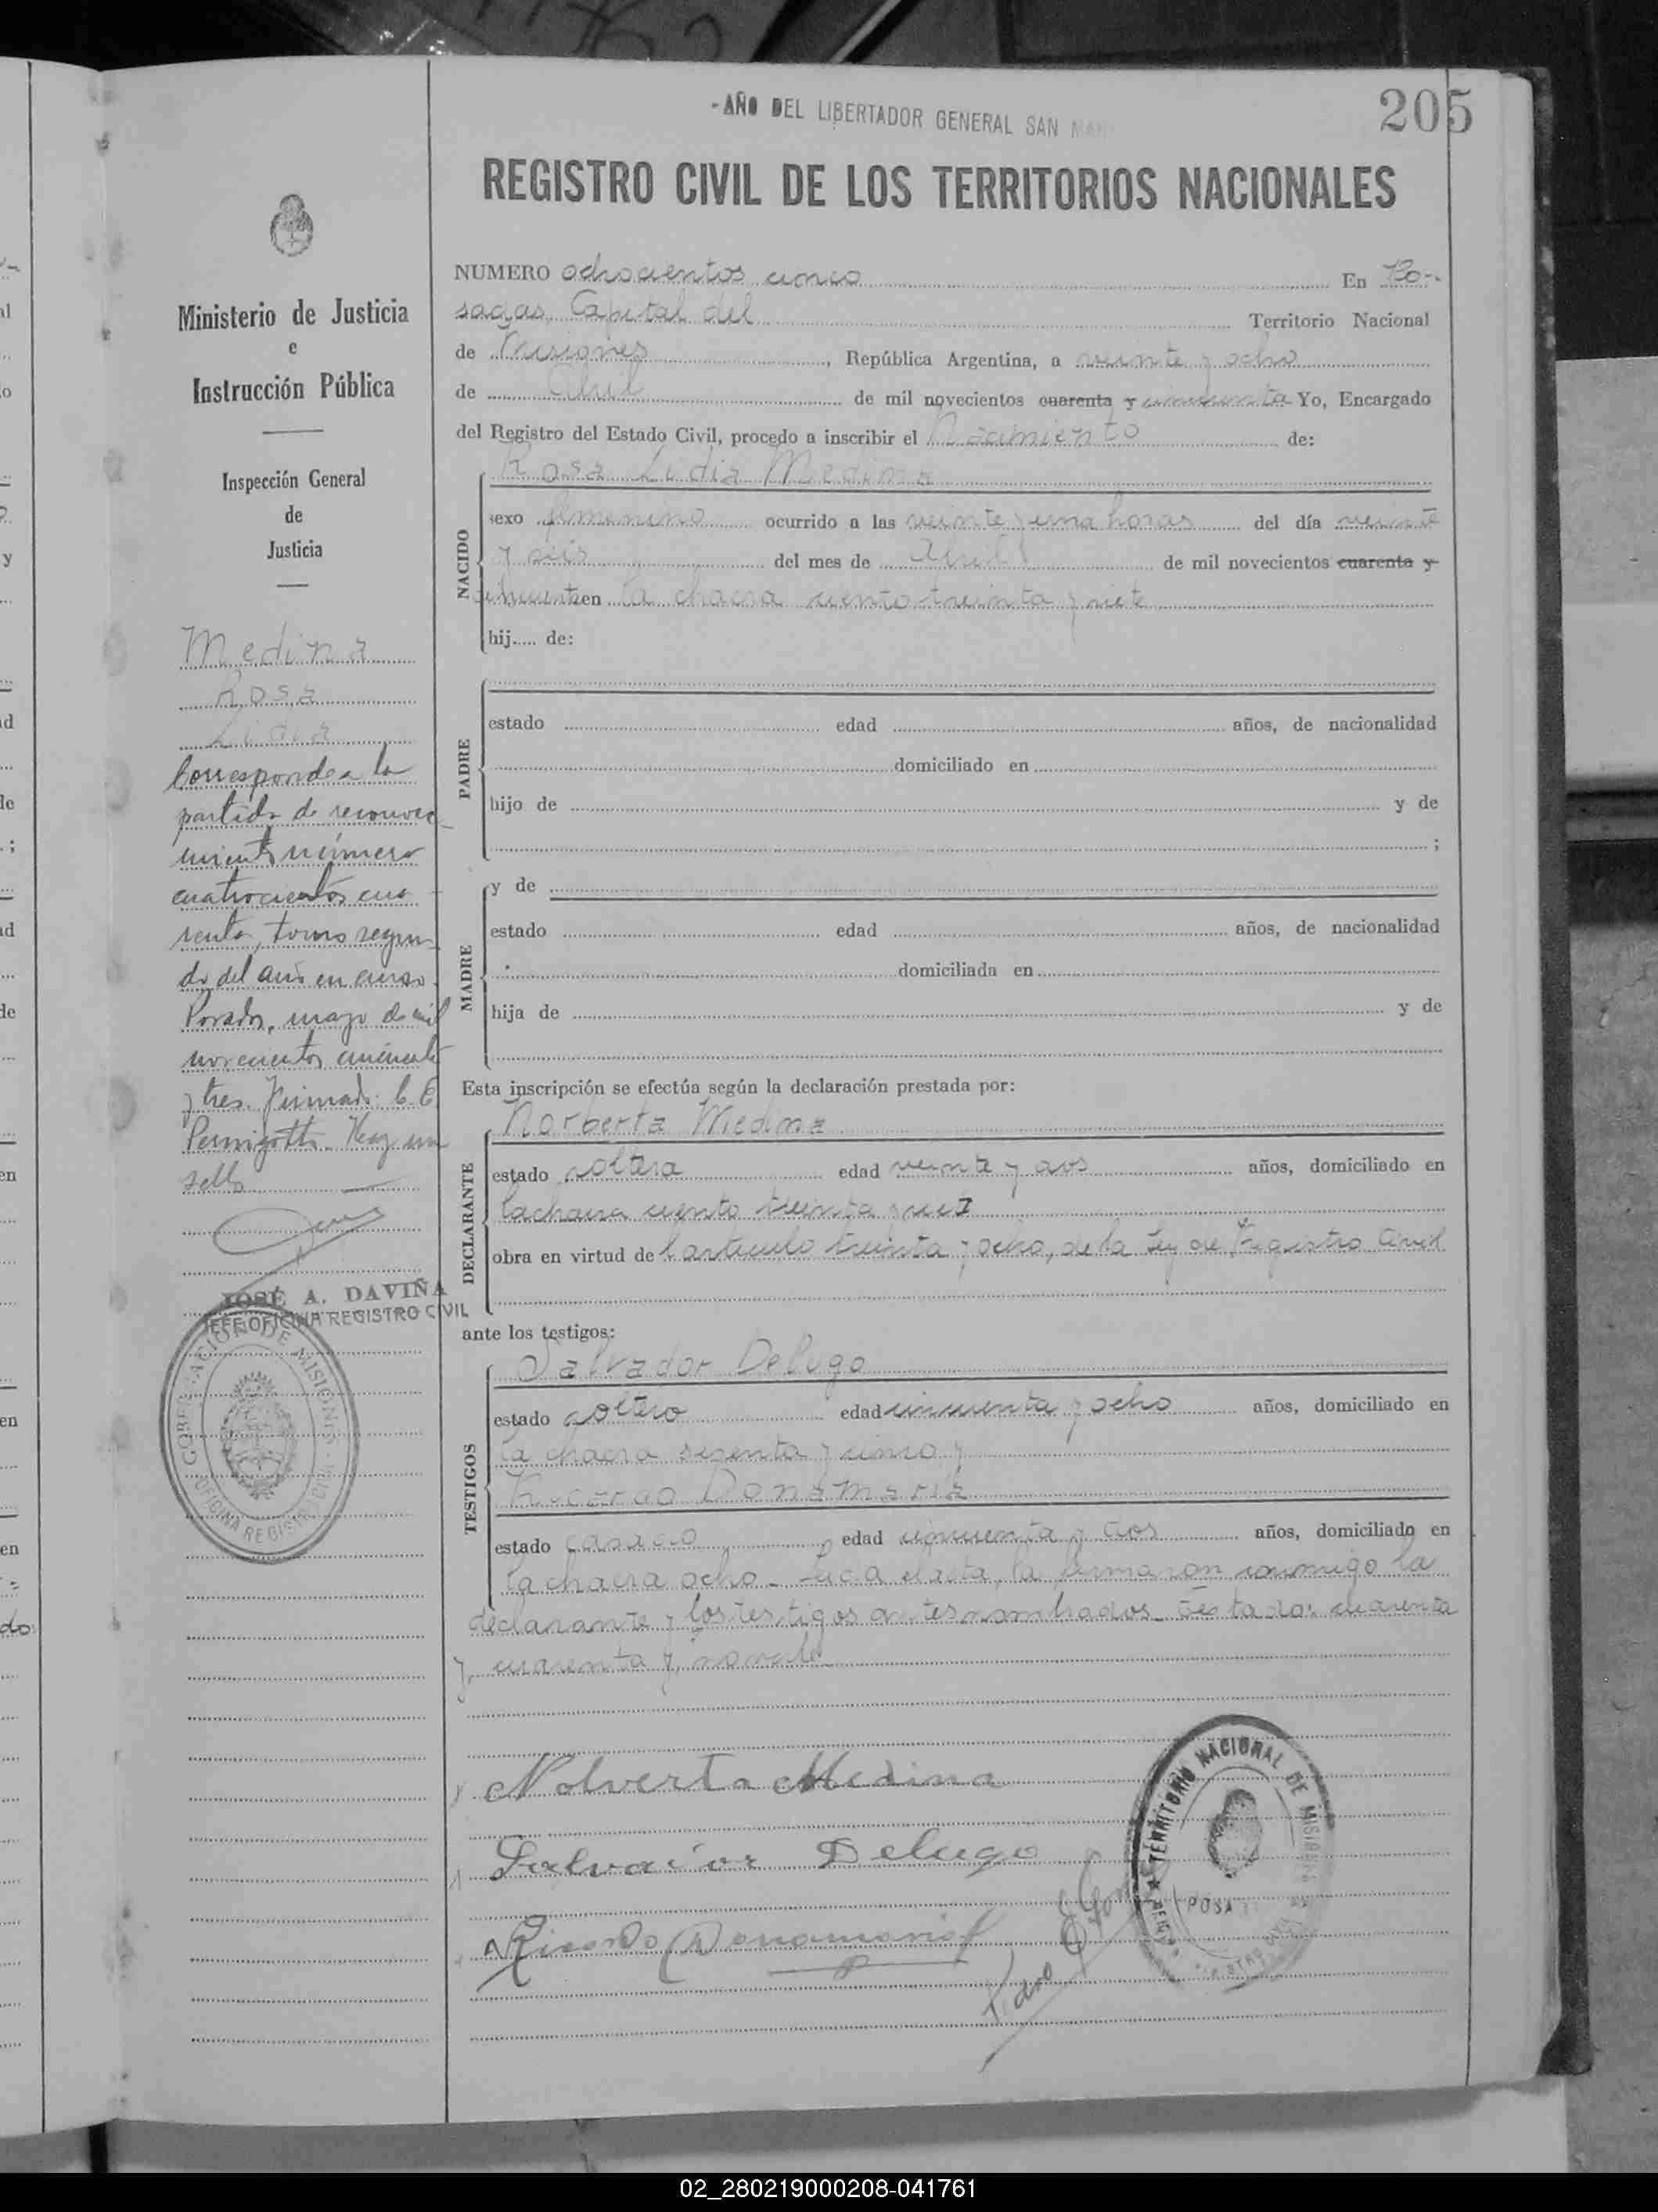 -AÑO DEL LIBERTADOR GENERAL SAN MAR
205
REGISTRO CIVIL DE LOS TERRITORIOS NACIONALES
Ministerio de Justicia
e
Instrucción Pública
Inspección General
de
Justicia
Medina
Rosa
Lidia
Corresponde a la
partida de reconoci
miento número
cuatrocientos cua
renta, tomo segun
do del año en curso.
Posadas, mayo de mil
novecientos cincuenta
y tres. Firmado: C. E.
Pernigotti. Hay un
sello
JOSÉ A. DAVIÑA
JEFE OFICINA REGISTRO CIVIL
GOBERNACION DE MISIONES
OFICINA REGISTRO CIVIL
NUMERO ochocientos cinco En Po-
sadas, Capital del Territorio Nacional
de Misiones, República Argentina, a veinte y ocho
de Abril de mil novecientos cuarenta y cincuenta Yo, Encargado
del Registro del Estado Civil, procedo a inscribir el Nacimiento de:
NACIDO
Rosa Lidia Medina
sexo femenino ocurrido a las veinte y una horas del día veinte
y seis del mes de Abril de mil novecientos cuarenta y
cincuenta en la chacra ciento treinta y siete
hij..... de:
PADRE
estado edad años, de nacionalidad
domiciliado en
hijo de y de
;
MADRE
y de
estado edad años, de nacionalidad
domiciliada en
hija de y de
Esta inscripción se efectúa según la declaración prestada por:
DECLARANTE
Norberta Medina
estado soltera edad veinte y dos años, domiciliado en
la chacra ciento treinta y siete
obra en virtud del artículo treinta y ocho, de la Ley de Registro Civil
ante los testigos:
TESTIGOS
Salvador Delugo
estado soltero edad cincuenta y ocho años, domiciliado en
la chacra sesenta y cinco y
Ricardo Donamaria
estado casado edad cincuenta y dos años, domiciliado en
la chacra ocho_ Leída el acta, la firmaron conmigo la
declarante y los testigos antes nombrados_ Testado: cuarenta
y, cuarenta y, no vale
Nolverta Medina
Salvador Delugo
Ricardo Donamaria
TERRITORIO NACIONAL DE MISIONES
POSA
02_280219000208-041761